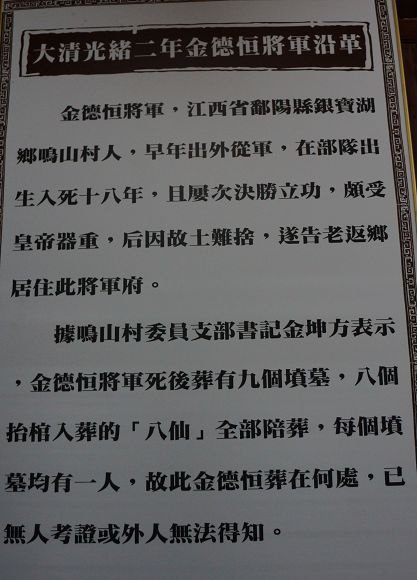 大清光緒二年金德恒將軍沿革
金德恒將軍，江西省鄱陽縣銀寶湖
鄉鳴山村人，早年出外從軍，在部隊出
生入死十八年，且屢次決勝立功，頗受
皇帝器重，后因故土難捨，遂告老返鄉
居住此將軍府。
據鳴山村委員支部書記金坤方表示
，金德恒將軍死後葬有九個墳墓，八個
抬棺入葬的「八仙」全部陪葬，每個墳
墓均有一人，故此金德恒葬在何處，已
無人考證或外人無法得知。